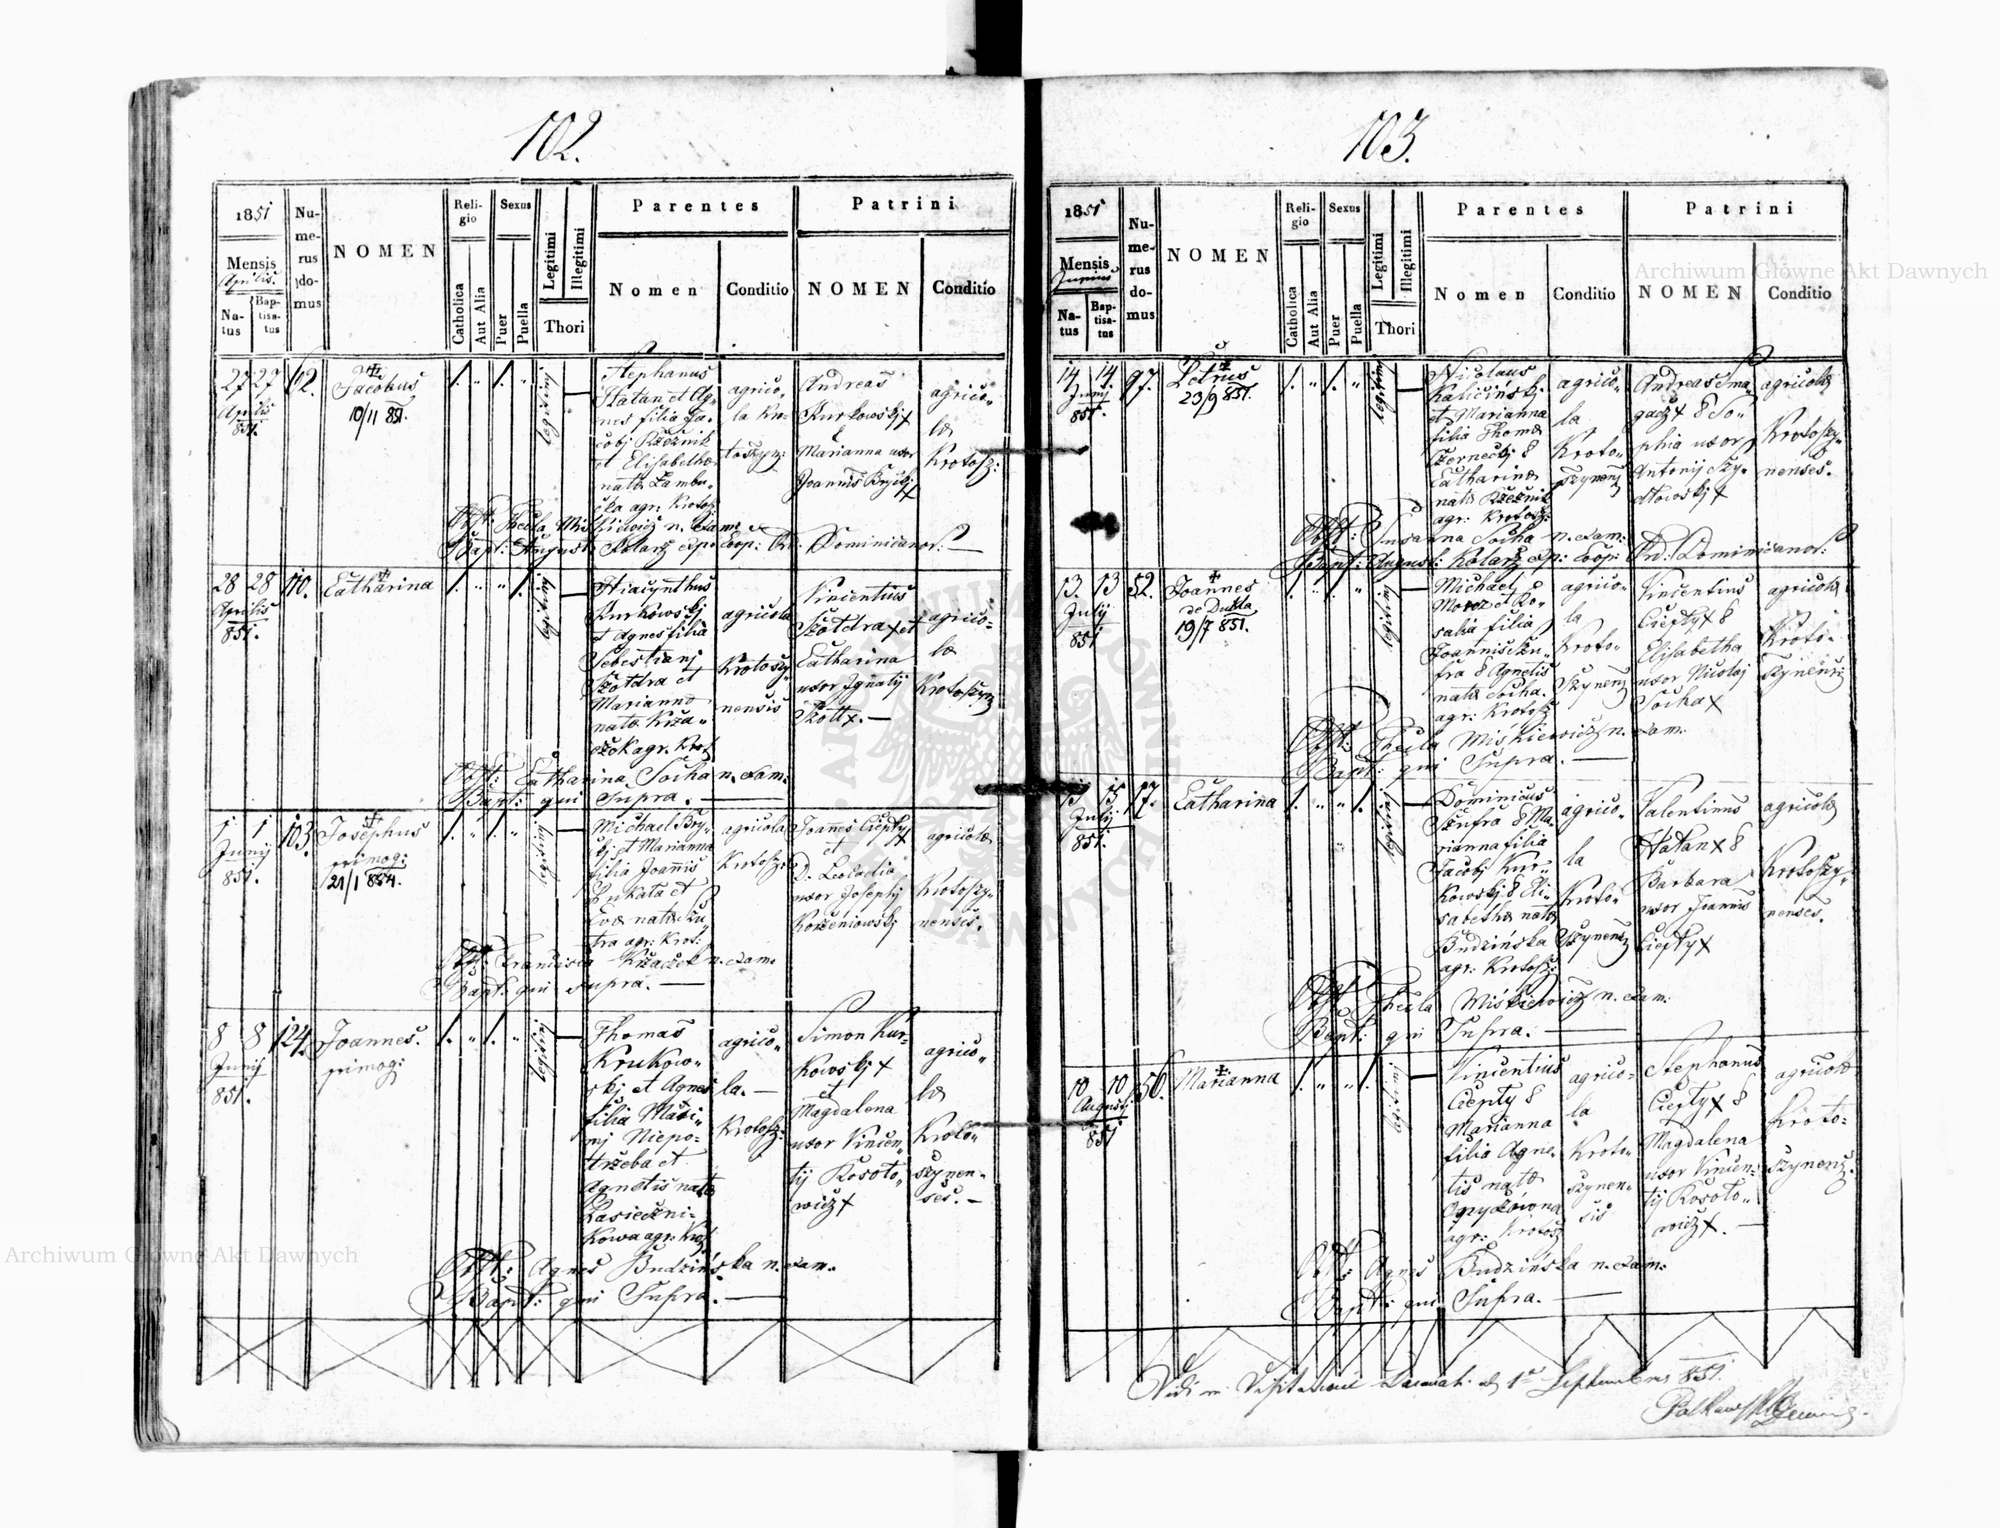 102.
1851
Mensis
Aprilis.
Natus
Baptisatus
Numerus domus
NOMEN
Religio
Catholica
Aut Alia
Sexus
Puer
Puella
Legitimi
Illegitimi
Thori
Parentes
Nomen
Conditio
Patrini
NOMEN
Conditio
27 27 62.
Aprilis
851.
Jacobus
10/11 851.
1. " 1. "
legitimi
Stephanus
Hatan et Ag-
nes filia Ja-
cobj Rzeźnik
et Elisabethæ
natæ
agr. Krotosz
agrico-
la Kro-
toszyn:
Andreas
Kurkowskj x
&
Marianna uxor
Joannis Bryikj
x
agrico-
læ
Krotosz:
Obst: Thecla Miśkiewicz n. exam:
Bapt: August: Kolarz exp: Coop: Ord: Dominicanor: —
28 28 110.
Aprilis
851.
Catharina
1. " " 1.
legitimi
Hiacynthus
Kurkowskj
et Agnes filia
Sebestianj
Szołdra et
Marianna
natæ Krza-
czek agr. Krot
agricola
Krotoszy-
nensis
Vincentius
Szołdra x et
Catharina
uxor Ignatij
Szott x. —
agrico-
læ
Krotoszyn
Obst: Catharina Socha n. exam:
Bapt: qui Supra. —
1 1 103.
Junij
851.
Josephus
primog:
21/1 854.
1. " 1. "
legitimi
Michael Bry-
kj et Marianna
filia Joannis
et
Evæ natæ Szu-
fra agr: Krot:
agricola
Krotosz:
Joannes Ciepły x
et
D. Leocadia
uxor Josephj
Korzeniowskj
agricolæ
Krotoszy-
nenses.
Obst: Francisca Krzaczek n. exam:
Bapt: qui Supra. —
8 8 124.
Junij
851.
Joannes.
primog:
1. " 1. "
legitimi
Thomas
Krukow-
skj et Agnes
filia
nj Niepo-
trzeba et
Agnetis natæ
Zasieczni-
kowa agr: Krot
agrico-
la. —
Krotosz:
Simon Kur-
kowskj x
et
Magdalena
uxor Vincen-
tij Kosoto-
wicz x
agrico-
læ
Kroto-
szynen-
ses. —
Obst: Agnes Budzińska n. exam:
Bapt: qui Supra. —
103.
1851
Mensis
Junius
Natus
Baptisatus
Numerus domus
NOMEN
Religio
Catholica
Aut Alia
Sexus
Puer
Puella
Legitimi
Illegitimi
Thori
Parentes
Nomen
Conditio
Patrini
NOMEN
Conditio
14 14. 97.
Junij
851.
Petrus
23/9 851.
1. " 1. "
legitimi
Nicolaus
Kalicińskj
et Marianna
filia Thomæ
Czerneckj &
Catharinæ
natæ Rzeźnik
agr: Krotosz:
agrico-
la
Kroto-
szynens
Andreas Sma-
gacz x & So-
phia uxor
Antonij Szy-
dłowskj x
agricolæ
Krotoszy-
nenses.
Obst: Susanna Socha n. exam:
Bapt: August: Kolarz exp: Coop: Ord: Dominicanor:
13. 13 52.
Julij
851
Joannes
de Dukla
19/7 851.
1. " 1. "
legitimi
Michael
Moroz et Ro-
salia filia
Joannis Szu-
fra & Agnetis
natæ Socha.
agr: Krotosz
agrico-
la
Kroto-
szynens
Vincentius
Ciepły x &
Elisabetha
uxor Nicolaj
Socha x
agricolæ
Kroto-
szynens
Obst: Thecla Miśkiewicz n. exam:
Bapt: qui Supra. —
15 15 17.
Julij
851.
Catharina
1. " " 1.
legitimi
Dominicus
Szufra & Ma-
rianna filia
Jacobj Kur-
kowskj & Eli-
sabethæ natæ
Budzińska
agr: Krotosz:
agrico-
la
Kroto-
szynens
Valentinus
Hatan x &
Barbara
uxor Joannis
Ciepły x
agricolæ
Krotoszy-
nenses.
Obst: Thecla Miśkiewicz n. exam:
Bapt: qui Supra. —
10 10 56.
Augusti
851
Marianna
1. " " 1.
legitimi
Vincentius
Ciepły &
Marianna
filia Agne-
tis natæ
agr: Krotosz
agrico-
la
Kroto-
szynen-
sis
Stephanus
Ciepły x &
Magdalena
uxor Vincen-
tij Kosoto-
wicz x. —
agricolæ
Kroto-
szynens.
Obst: Agnes Budzińska n. exam:
Bapt: qui Supra. —
Vidi in Visitatione Decanali d 1a Septembris 851.
Archiwum Główne Akt Dawnych
Archiwum Główne Akt Dawnych
ARCHIWUM GŁÓWNE AKT DAWNYCH